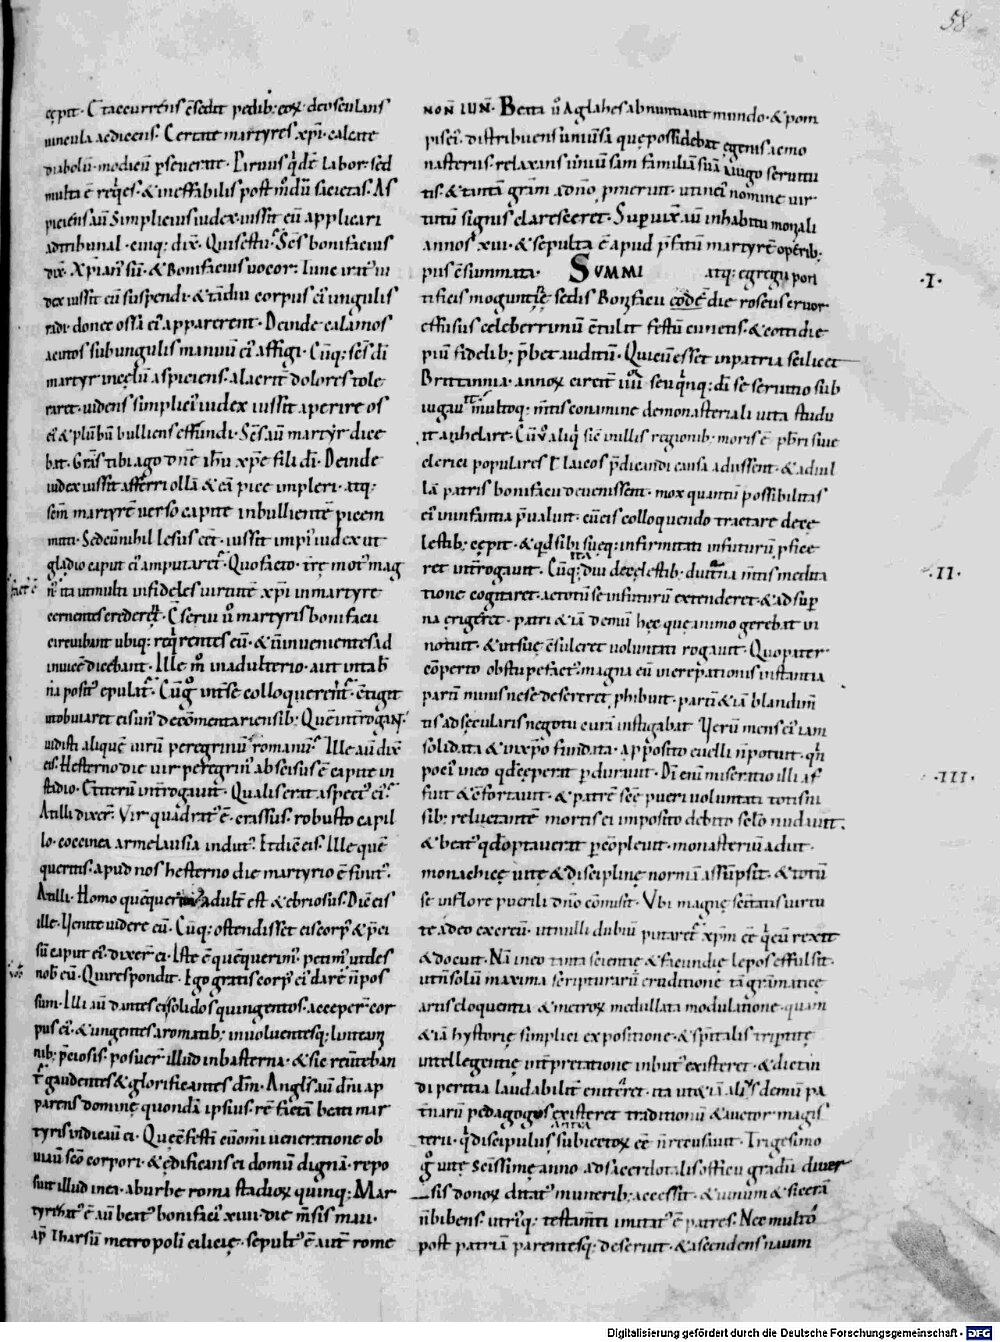 58
cępit. Et accurrens c̄sedit pedib; eoꝝ deosculans
uincula ac dicens. Certate martyres xp̄i. calcate
diabolū. modicū p̱seuerate. Paruus q̇dē labor. sed
multa ē req̇es. & ineffabilis post m̄dū sacietas. As
piciens aū Simplicius iudex. iussit eū applicari
ad tribunal. eiꝗ; dix̄. Quis es tu. S̄cs bonifacius
dix̄. Xp̄ianꝰ sū. & Bonifacius uocor. Tunc iratꝰ iu
dex iussit eū suspendi. & tādiu corpus eiꝰ ungulis
radi. donec ossa eiꝰ apparerent. Deinde calamos
acutos sub ungulis manuū eiꝰ affigi. Cūꝗ; sc̄s dī
martyr in cęlū aspiciens. alacrit̄ dolores tole
raret. uidens simpliciꝰ iudex iussit aperire os
eiꝰ & plūbū bulliens effundi. S̄cs aū martyr dice
bat. Grās tibi ago dn̄e ih̄u xp̄e fili dī. Deinde
iudex iussit afferri ollā & eā pice impleri. atꝗ;
s̄cm martyrē uerso capite in bullientē picem
mitti. Sed cū nihil lesus eēt. iussit impiꝰ iudex ut
gladio caput eiꝰ amputaretꝰ. Quo facto. t̄rę motꝰ mag
nꝰ ita ut multi infideles uirtutē xp̄i in martyre
cernentes crederēt. Cserui ū martyris bonifacii
circuibant ubiꝗ; req̇rentes eū. & n̄ inuenientes ad
inuicē dicebant. Ille m̊ in adulterio. aut in tab̄
na positꝰ epulat̄. Cūꝗ int̄ se colloquerent̄. c̄tigit
ut obuiaret eis unꝰ de cōmentariensib;. Quē int̄rogaꝝ.
uidisti aliquē uirū peregrinū romanū. Ille aū dix̄
eis. Hesterno die uir peregrinꝰ abscisus ē capite in
stadio. Et iterū int̄rogauit. Qualis erat aspectꝰ eiꝰ.
At illi dixer̄. Vir quadratꝰ ē. crassus. robusto capil
lo. coccinea armelausia indutꝰ. Et dic̄ eis. Ille quē
queritis. apud nos hesterno die martyrio ē finitꝰ.
At illi. Homo quē querimꝰ adult̄ est & ebriosus. Dic̄ eis
ille. Uenite uidere eū. Cūꝗ; ostendisset eis corpꝰ & p̄ci
sū caput eiꝰ. dixer̄ ei. Iste ē quē querimꝰ. petimꝰ ut des
nob̄ eū. Qui respondit. Ego gratis corpꝰ eiꝰ dare n̄ pos
sum. Illi aū dantes ei solidos quingentos. acceper̄ cor
pus eiꝰ. & ungentes aromatib; inuoluentesꝗ; linteam̄
nib; p̄ciosis. posuer̄ illud in basterna. & sic reuerteban
t̄ gaudentes & glorificantes dm̄. Anglꝰ aū dn̄i ap
parens dominę quondā ipsius. rē factā beati mar
tyris indicauit ei. Que c̄festī cū om̄i ueneratione ob
uiauit sc̄o corpori. & ędificans ei domū dignā. repo
suit illud in ea. ab urbe roma stadioꝝ quinꝗ;. Mar
tyrizatꝰ ē aū beatꝰ bonifaciꝰ. xiiii. die m̄sis maii.
ap̄ Tharsū metropolī cilicię. sepultꝰ ē aut̄ rome
NON̄ IUN̄. Beata ū Aglahes abnuntiauit mundo. & pom
pis eiꝰ. distribuens uniuersa que possidebat egenis ac mo
nasteriis. relaxans uniuersam familiā suā a iugo seruitu
tis. & tantā grām a dn̄o p̱meruit. ut in eiꝰ nomine uir
tutū signis claresceret. Superuix̄ aū in habitu monali
annos. xiii. & sepulta ē apud p̄fatū martyrē. operib;
pus c̄summata. SUMMI atꝗ; egregii pon
tificis moguntię sedis Bonifacii eodē die roseus cruor
effusus celeberrimū c̄tulit festū cunctis. & cottidie
piū fidelib; p̄bet auditū. Qui cū esset in patria scilicet
Brittannia. annoꝝ circit̄ iiii seu q̇nꝗ;. dī se seruitio sub
iugauit. multoꝗ; m̄tis conamine de monasteriali uita studu
it anhelare. Cū ū aliq̇ sic in illis regionib; moris ē. pb̄ri siue
clerici populares ꝉ laicos p̄dicandi causa adissent. & ad uil
lā patris bonifacii deuenissent. mox quantū possibilitas
eiꝰ in infantia p̄ualuit. cū eis colloquendo tractare de cę
lestib; cępit. & qd̄ sibi suęꝗ; infirmitati in futurū p̱fice
ret int̄rogauit. Cūꝗ; diu de cęlestib; diutina m̄tis medita
tione cogitaret. ac totū se in futurū extenderet. & ad sup̱
na erigeret. patri & iā demū hęc quę animo gerebat in
notuit. & ut suę c̄suleret uoluntati rogauit. Quo pater
cōperto obstupefactꝰ. magna eū increpationis instantia
partī minis ne se desereret p̱hibuit. partī & iā blandim̄
tis ad secularis negotii curā instigabat. Uerū mens eiꝰ iam
solidata & in xp̄o fundata. a p̱posito euelli n̄ potuit. q̇n
poci in eo qd̄ cęperat p̱durauit. Dī enī miseratio illi af
fuit & c̄fortauit. & patrē sc̄e pueri uoluntati totis ni
sib; reluctantē mortis ei imposito debito solo nudauit.
& beatꝰ qd̄ optauerat p̱cōpleuit. monasteriū adiit.
monachicę uitę & disciplinę normā assūpsit. & totū
se in flore puerili dn̄o cōmisit. Vbi magnę sc̄itatis uirtu
te adeo exercuit. ut nulli dubiū putaret̄ xp̄m eē q̇ eū rexit
& docuit. Nā in eo tanta scientię & facundię lepos effulsit.
ut n̄ solū maxima scripturarū eruditione tā grāmaticę
artis eloquentia & metroꝝ medullata modulatione quam
& iā hystorię simplici expositione. & spīitalis triptitę
intellegentię int̄pretatione inbutꝰ existeret. & dictan
di peritia laudabilit̄ eniteret. ita ut & iā aliis demū pa
t̄narū pędagogus existeret traditionū & auctor magis
terii. q̇ discipulus antea subiectoꝝ eē n̄ recusauit. Trigesimo
g̊ uitę sc̄issimę anno ad sacerdotalis officii gradū diuer
sis donoꝝ ditatꝰ munerib; accessit. & uinum & sicerā
n̄ bibens. utriꝗ; testam̄ti imitatꝰ ē patres. Nec multo
post patriā parentesꝗ; deseruit. & ascendens nauim
·I·
·II·
·III·
Digitalisierung gefördert durch die Deutsche Forschungsgemeinschaft - DFG